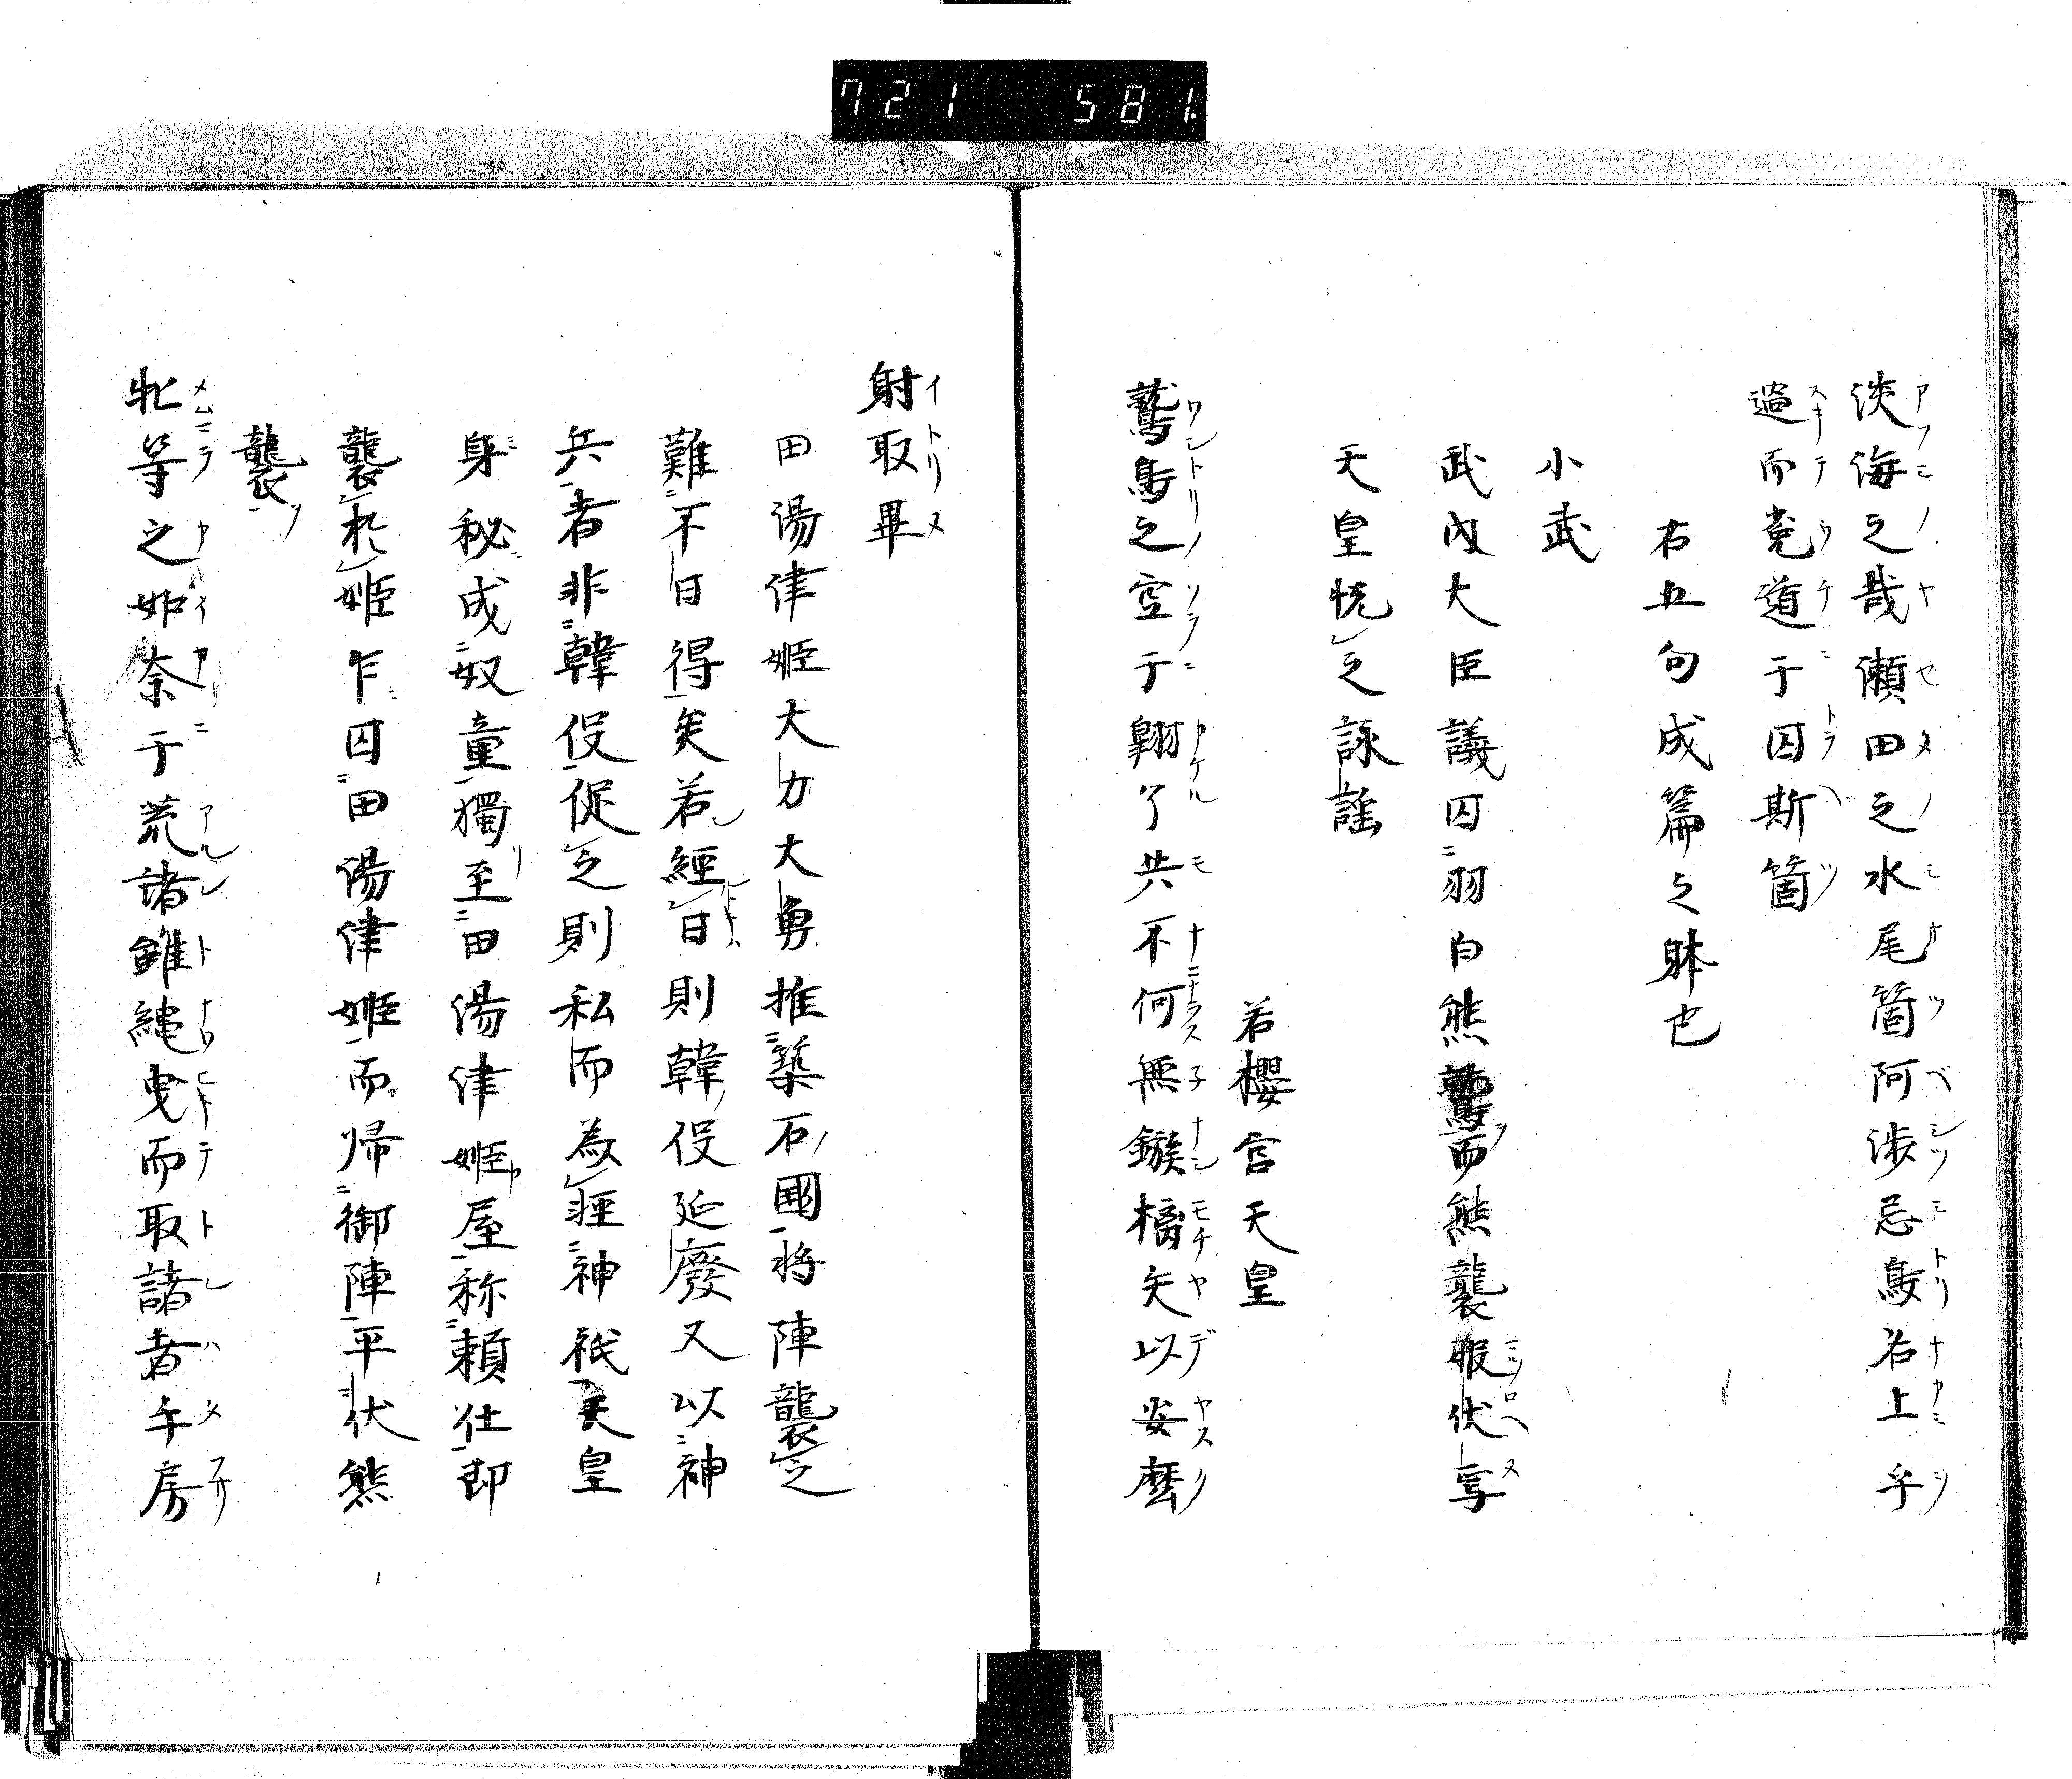 721 581.
淡海之哉瀬田之水尾箇阿渉忌鳥右上乎
過而菟道于囚斯箇
右五句成篇之躰也
小武
武内大臣議囚羽白熊鷲而熊襲服伏写
天皇悦之詠謡
若櫻宮天皇
鷲鳥之空于翺了共不何無鏃橘矢以安麼
射取畢
田湯津姫大力大勇推築石國将陣襲之
難不日得矣若經日則韓役延廢又以神
兵者非韓役促之則私而為誣神祇天皇
身秘成奴童獨至田湯津姫屋称頼仕即
襲於姫乍囚田湯津姫而帰御陣平伏熊
襲
牝等之如奈于荒諸雖縄曳而取諸者手房